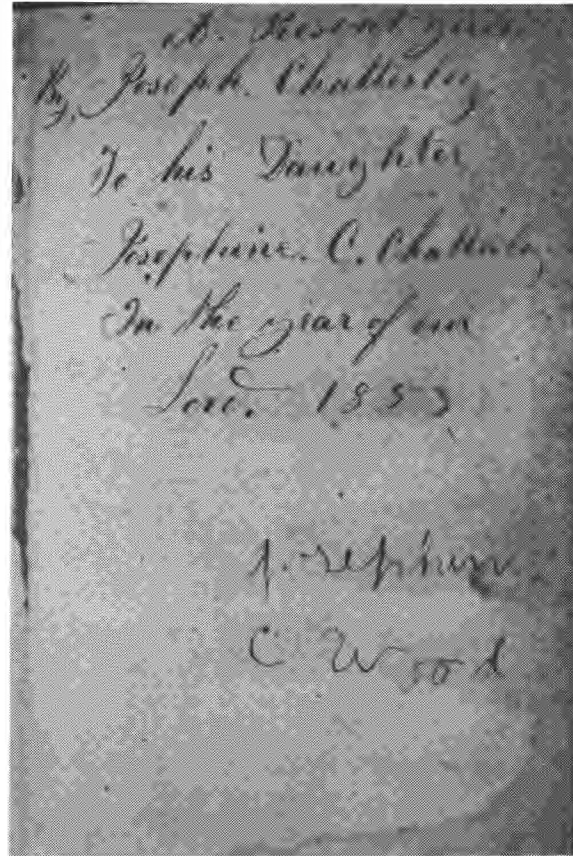 A. Present given
by Joseph. Chatterley
To his Daughter
Josephine. C. Chatterley
In the year of our
Lord. 1853
Josephine
C Wood